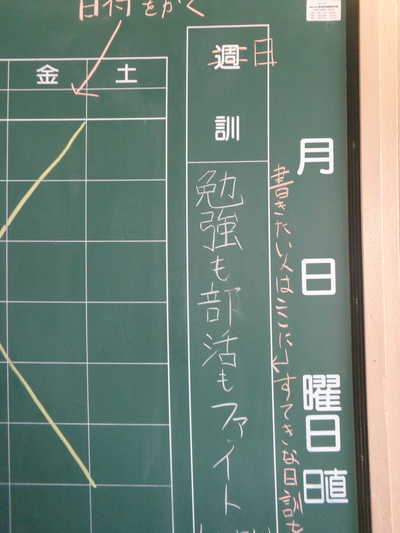 日付をかく
金 土
週日
訓
月 日 曜日
日直
書きたい人はここに
↓すてきな日訓を
勉強も部活もファイト